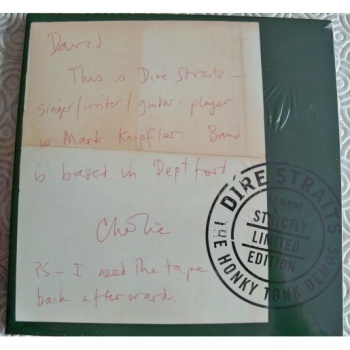 David
This is Dire Straits -
singer/writer/guitar-player
is Mark Knopfler. Band
is based in Deptford
Charlie
PS - I need the tape
back afterward.
DIRE STRAITS
STRICTLY
LIMITED
EDITION
THE HONKY TONK DEMOS